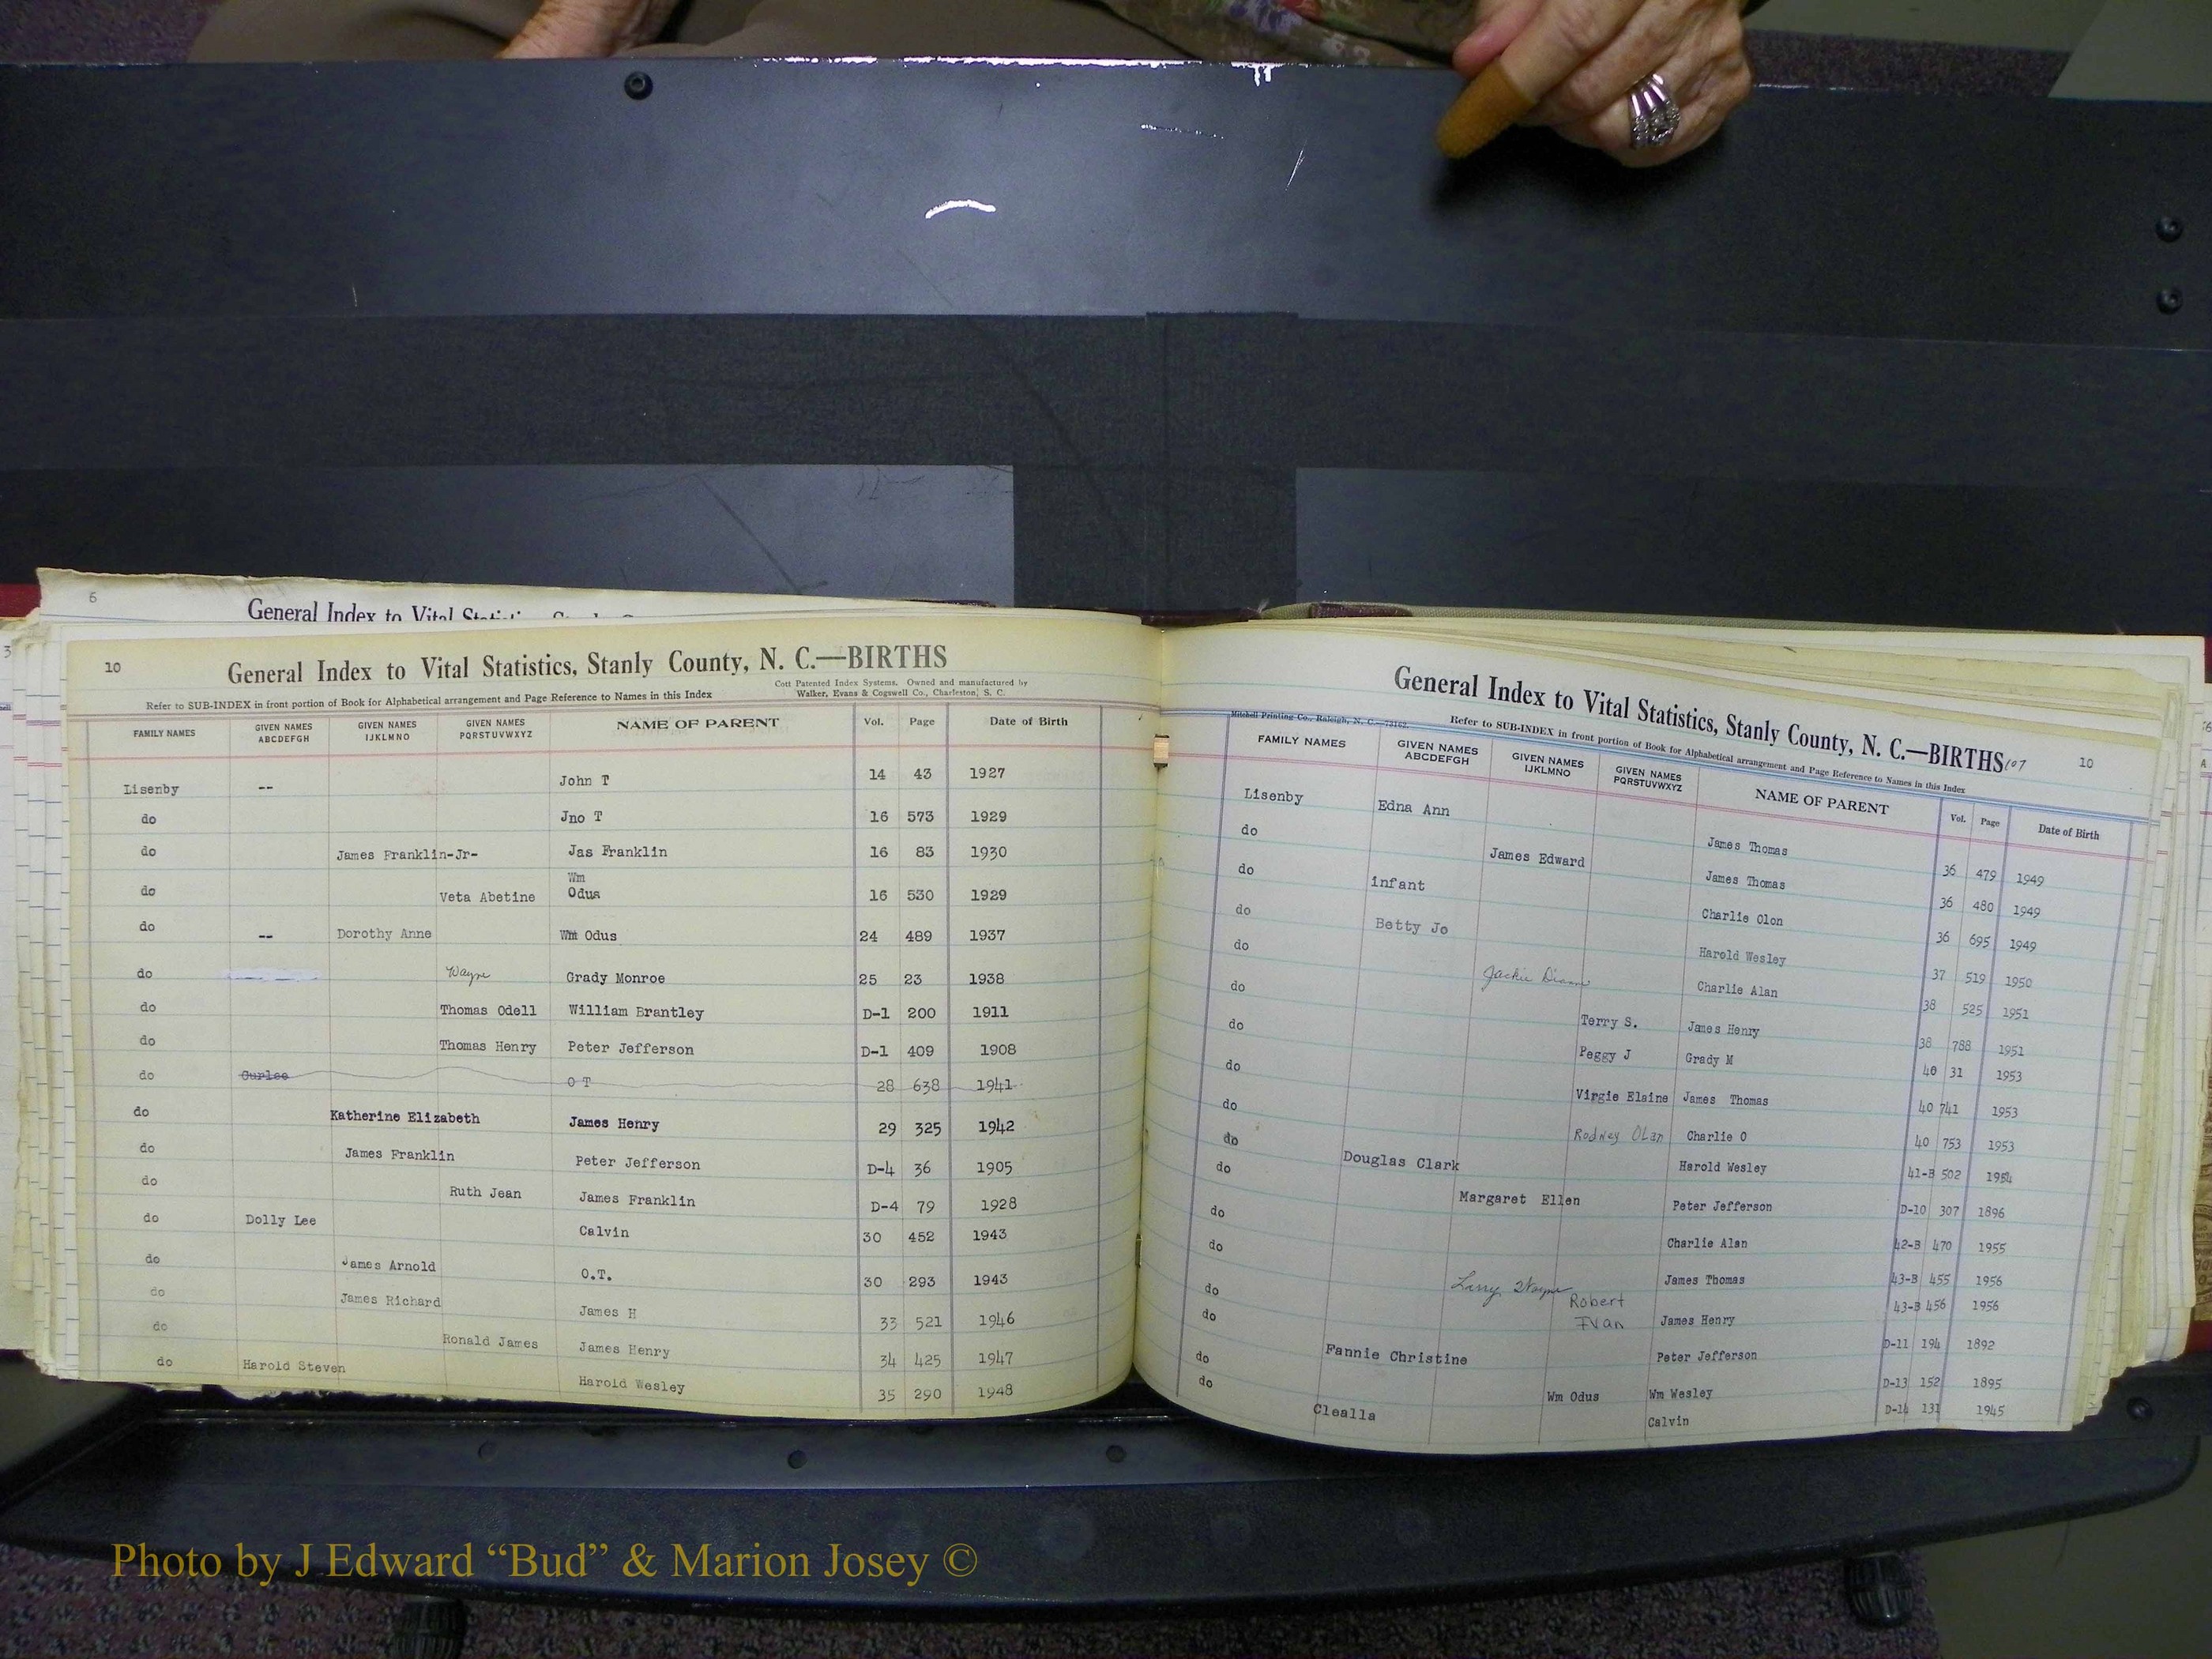 6
General Index to Vital Statisti
10
General Index to Vital Statistics, Stanly County, N. C.—BIRTHS
Cott Patented Index Systems. Owned and manufactured by
Walker, Evans & Cogswell Co., Charleston, S. C.
Refer to SUB-INDEX in front portion of Book for Alphabetical arrangement and Page Reference to Names in this Index
FAMILY NAMES GIVEN NAMES ABCDEFGH GIVEN NAMES IJKLMNO GIVEN NAMES PQRSTUVWXYZ NAME OF PARENT Vol. Page Date of Birth
Lisenby -- John T 14 43 1927
do Jno T 16 573 1929
do James Franklin-Jr- Jas Franklin 16 83 1930
do Veta Abetine Wm Odus 16 530 1929
do -- Dorothy Anne Wm Odus 24 489 1937
do Wayne Grady Monroe 25 23 1938
do Thomas Odell William Brantley D-1 200 1911
do Thomas Henry Peter Jefferson D-1 409 1908
do Curlee O T 28 638 1941
do Katherine Elizabeth James Henry 29 325 1942
do James Franklin Peter Jefferson D-4 36 1905
do Ruth Jean James Franklin D-4 79 1928
do Dolly Lee Calvin 30 452 1943
do James Arnold O.T. 30 293 1943
do James Richard James H 33 521 1946
do Ronald James James Henry 34 425 1947
do Harold Steven Harold Wesley 35 290 1948
General Index to Vital Statistics, Stanly County, N. C.—BIRTHS 107 10
Mitchell Printing Co., Raleigh, N. C.—73162
Refer to SUB-INDEX in front portion of Book for Alphabetical arrangement and Page Reference to Names in this Index
FAMILY NAMES GIVEN NAMES ABCDEFGH GIVEN NAMES IJKLMNO GIVEN NAMES PQRSTUVWXYZ NAME OF PARENT Vol. Page Date of Birth
Lisenby Edna Ann James Thomas 36 479 1949
do James Edward James Thomas 36 480 1949
do infant Charlie Olon 36 695 1949
do Betty Jo Harold Wesley 37 519 1950
do Jackie Diane Charlie Alan 38 525 1951
do Terry S. James Henry 38 788 1951
do Peggy J Grady M 40 31 1953
do Virgie Elaine James Thomas 40 741 1953
do Rodney Olan Charlie O 40 753 1953
do Douglas Clark Harold Wesley 41-B 502 1954
do Margaret Ellen Peter Jefferson D-10 307 1896
do Charlie Alan 42-B 470 1955
do Larry Wayne James Thomas 43-B 455 1956
do Robert Ivan James Henry 43-B 456 1956
do Fannie Christine Peter Jefferson D-11 194 1892
do Wm Odus Wm Wesley D-13 152 1895
do Clealla Calvin D-14 131 1945
Photo by J Edward “Bud” & Marion Josey ©